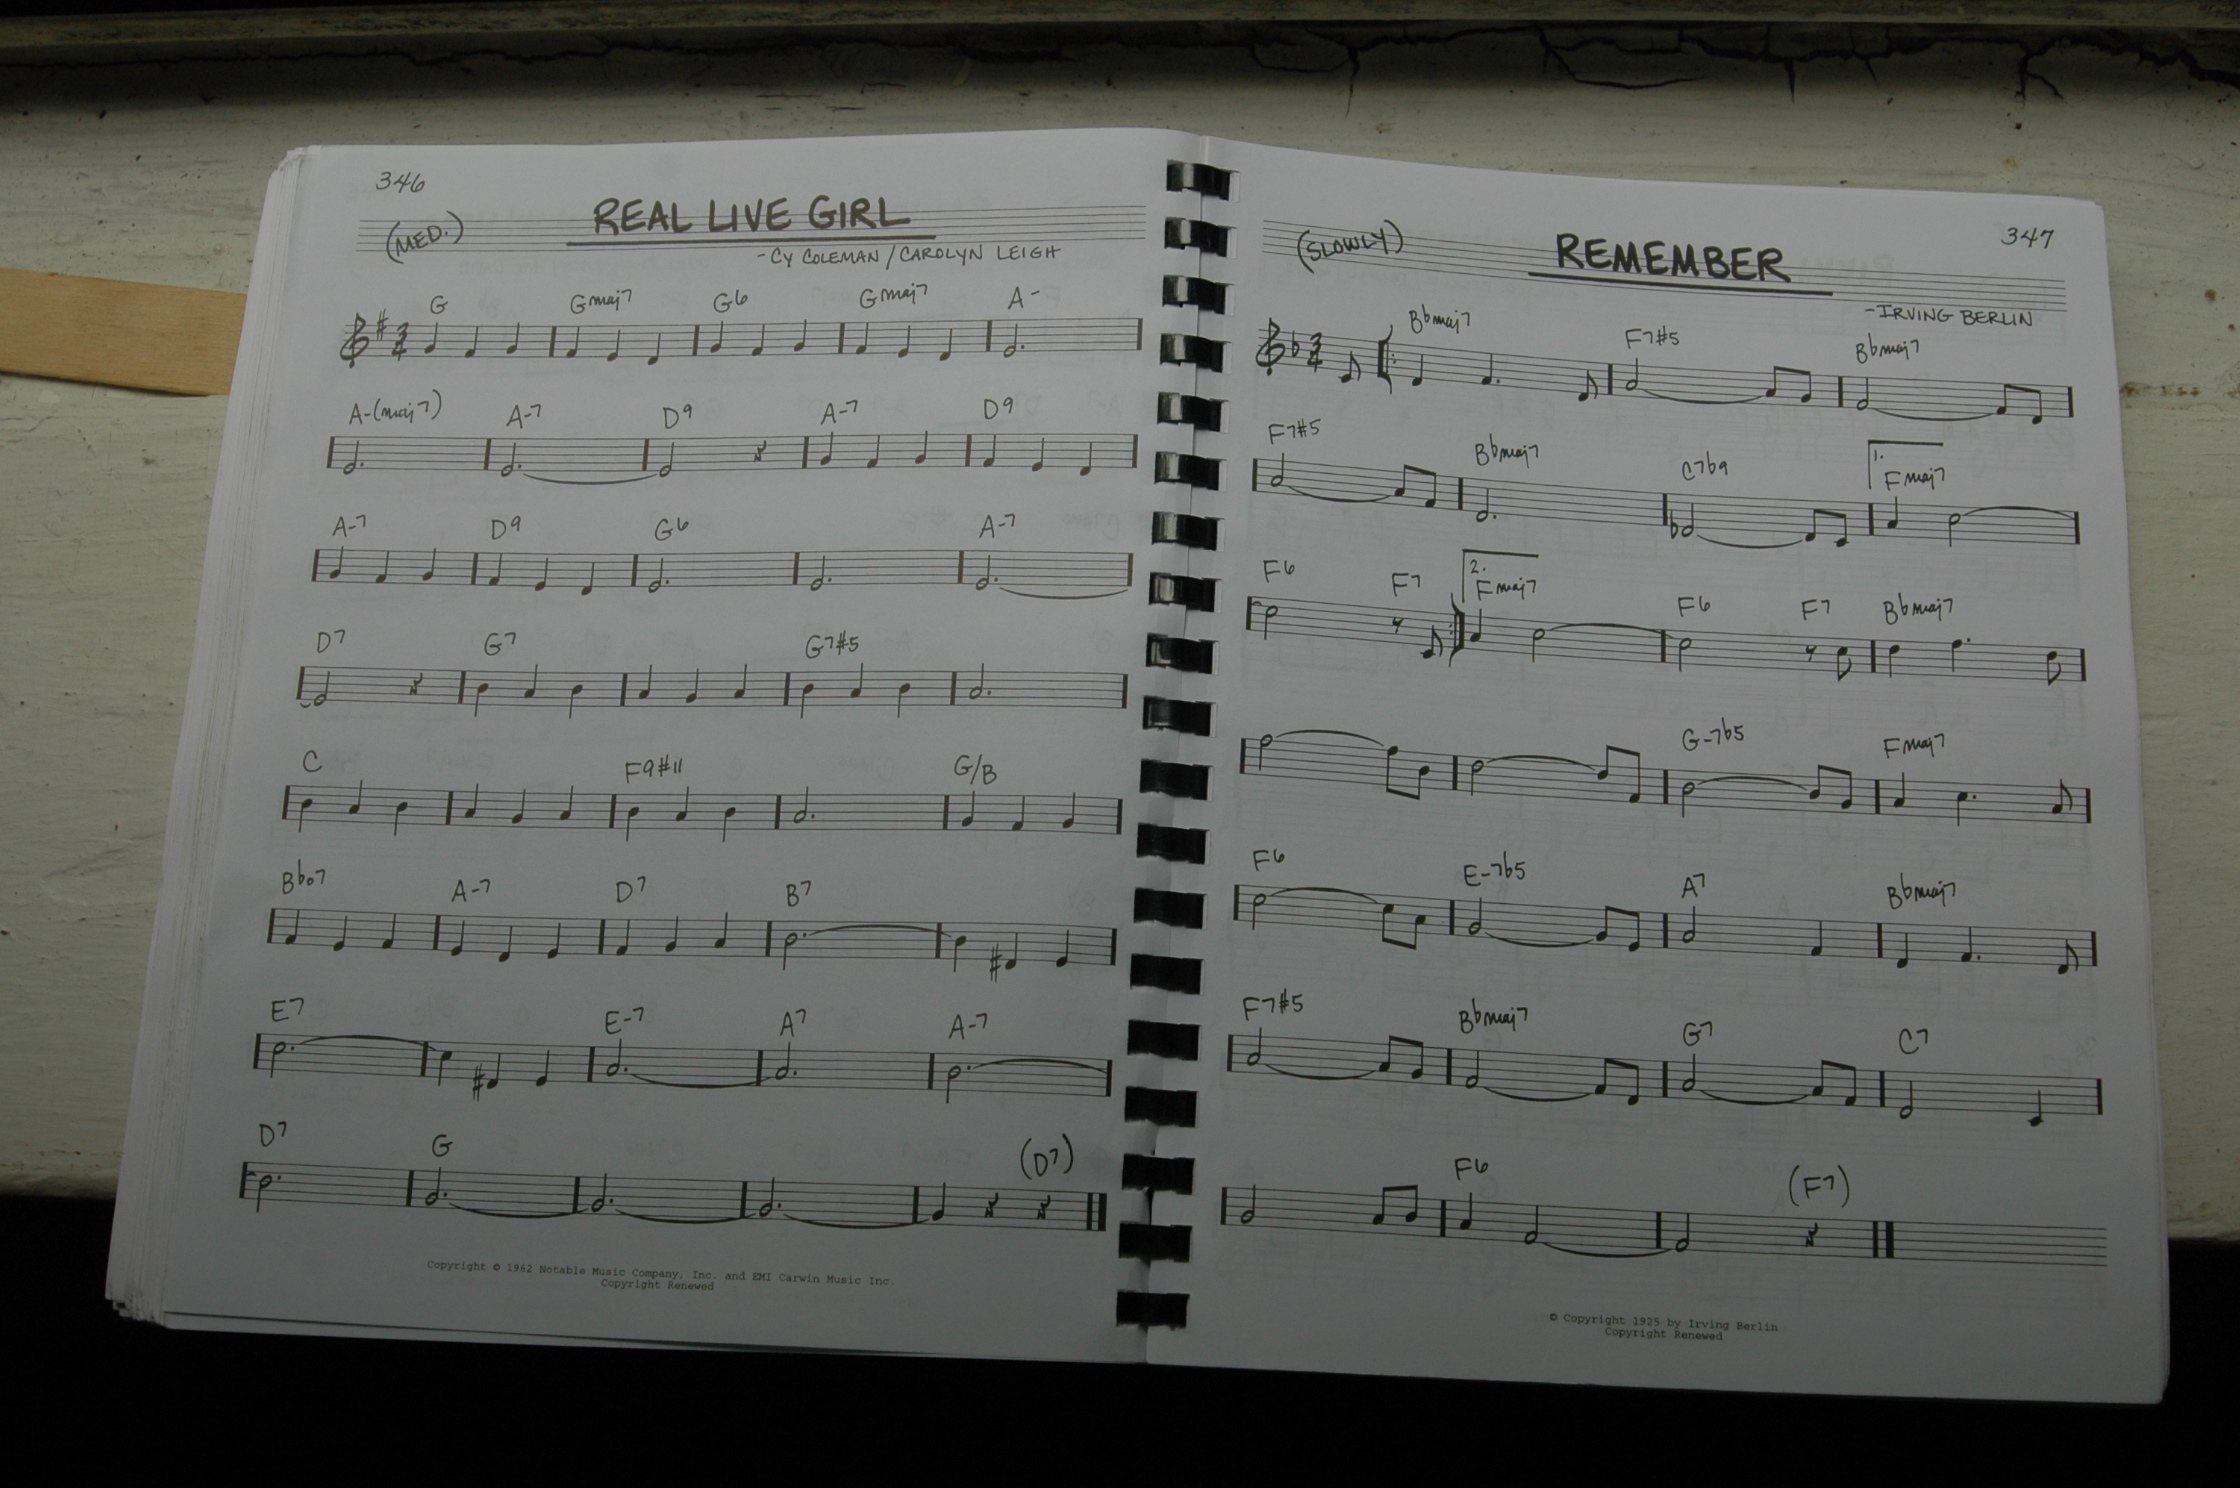 346
REAL LIVE GIRL
(MED.)
-CY COLEMAN/CAROLYN LEIGH
G Gmaj7 G6 Gmaj7 A-
3
4
A-(maj7) A-7 D9 A-7 D9
A-7 D9 G6 A-7
D7 G7 G7#5
C F9#11 G/B
Bbo7 A-7 D7 B7
E7 E-7 A7 A-7
D7 G (D7)
Copyright © 1962 Notable Music Company, Inc. and EMI Carwin Music Inc.
Copyright Renewed
347
(SLOWLY)
REMEMBER
-IRVING BERLIN
Bbmaj7 F7#5 Bbmaj7
3
4
F7#5 Bbmaj7 C7b9 1. Fmaj7
F6 F7 2. Fmaj7 F6 F7 Bbmaj7
G-7b5 Fmaj7
F6 E-7b5 A7 Bbmaj7
F7#5 Bbmaj7 G7 C7
F6 (F7)
© Copyright 1925 by Irving Berlin
Copyright Renewed